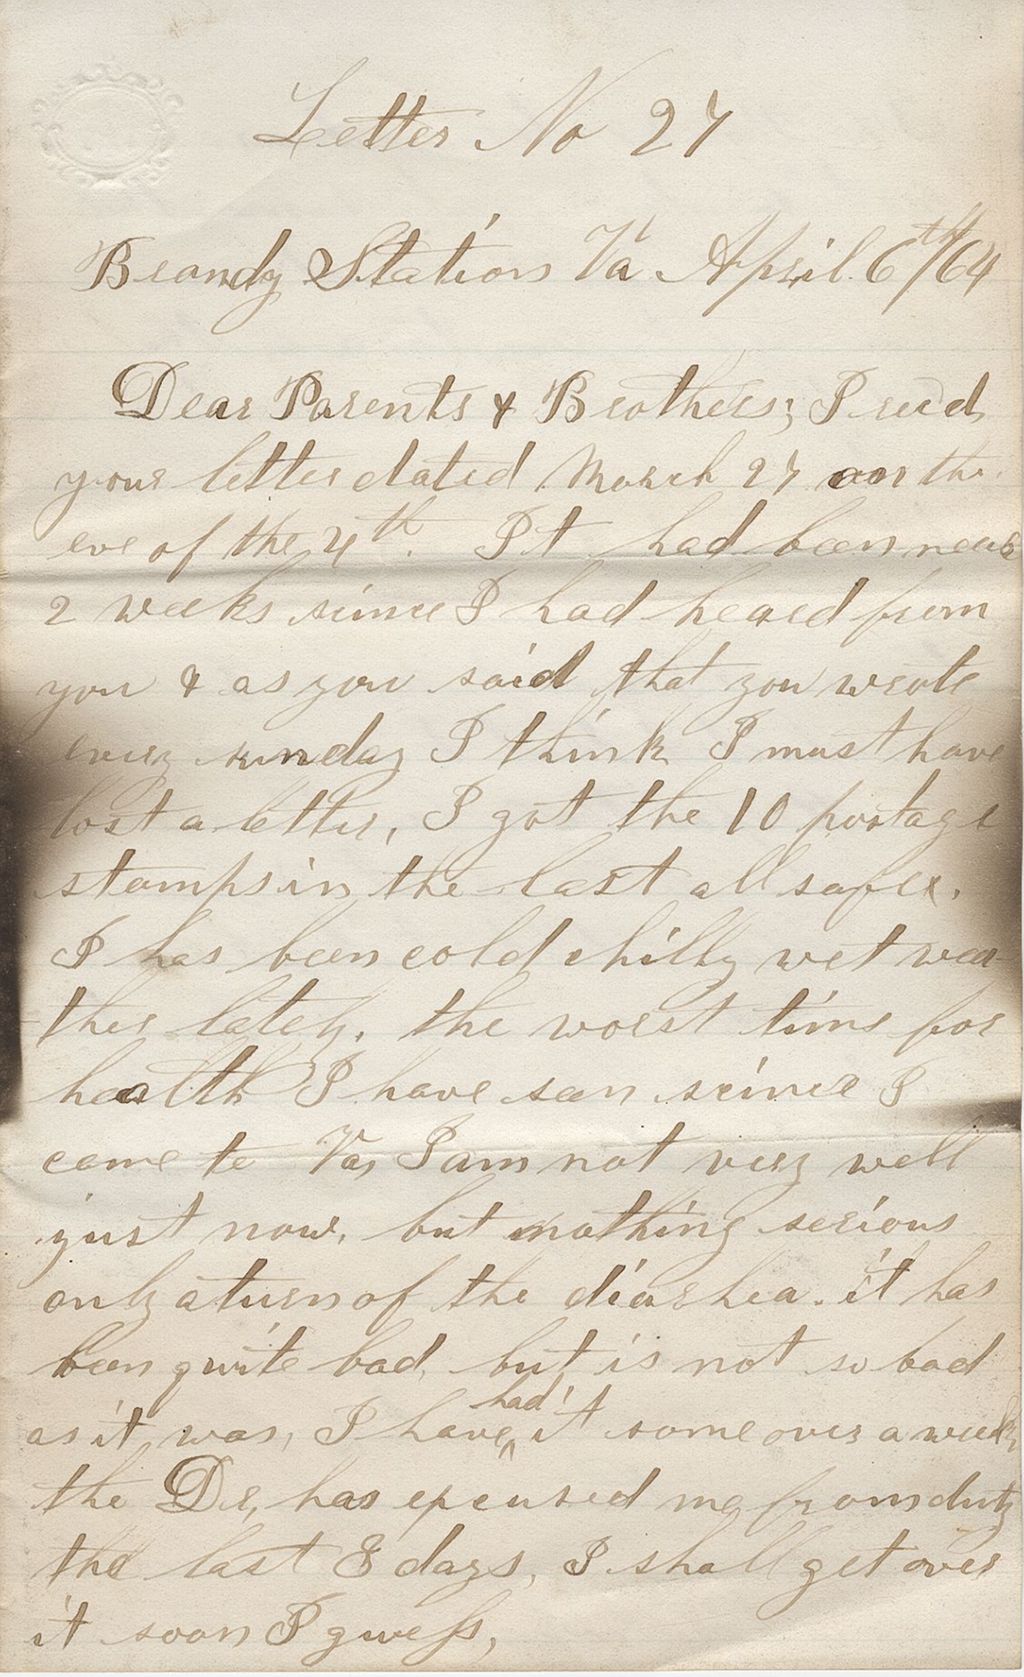 Letter No 27
Brandy Station Va April 6th/64
Dear Parents & Brothers; I rec'd
your letter dated March 27 on the
eve of the 4th. It had been near
2 weeks since I had heard from
you & as you said that you wrote
every sunday I think I must have
lost a letter, I got the 10 postage
stamps in the last all safe.
I has been cold chilly wet wea-
ther lately. the worst time for
health I have seen since I
came to Va, I am not very well
just now. but nothing serious
only a turn of the diarhea. it has
been quite bad, but is not so bad
as it was, I have had it some over a week,
the Dr, has excused me from duty
the last 8 days, I shall get over
it soon I guess,